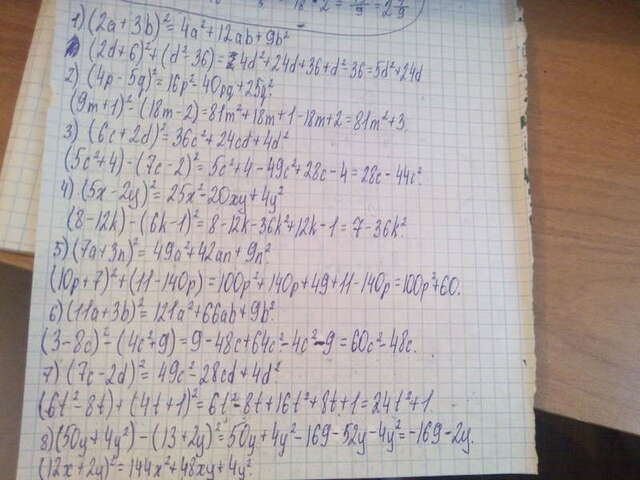 1) (2a+3b)²=4a²+12ab+9b²
(2d+6)²+(d²-36)=4d²+24d+36+d²-36=5d²+24d
2) (4p-5q)²=16p²-40pq+25q²
(9m+1)²-(18m-2)=81m²+18m+1-18m+2=81m²+3.
3) (6c+2d)²=36c²+24cd+4d²
(5c²+4)-(7c-2)²=5c²+4-49c²+28c-4=28c-44c².
4) (5x-2y)²=25x²-20xy+4y²
(8-12k)-(6k-1)²=8-12k-36k²+12k-1=7-36k².
5) (7a+3n)²=49a²+42an+9n².
(10p+7)²+(11-140p)=100p²+140p+49+11-140p=100p²+60.
6) (11a+3b)²=121a²+66ab+9b².
(3-8c)²-(4c²+9)=9-48c+64c²-4c²-9=60c²-48c.
7) (7c-2d)²=49c²-28cd+4d²
(6t²-8t)+(4t+1)²=6t²-8t+16t²+8t+1=24t²+1.
8) (50y+4y²)-(13+2y)²=50y+4y²-169-52y-4y²=-169-2y.
(12x+2y)²=144x²+48xy+4y².